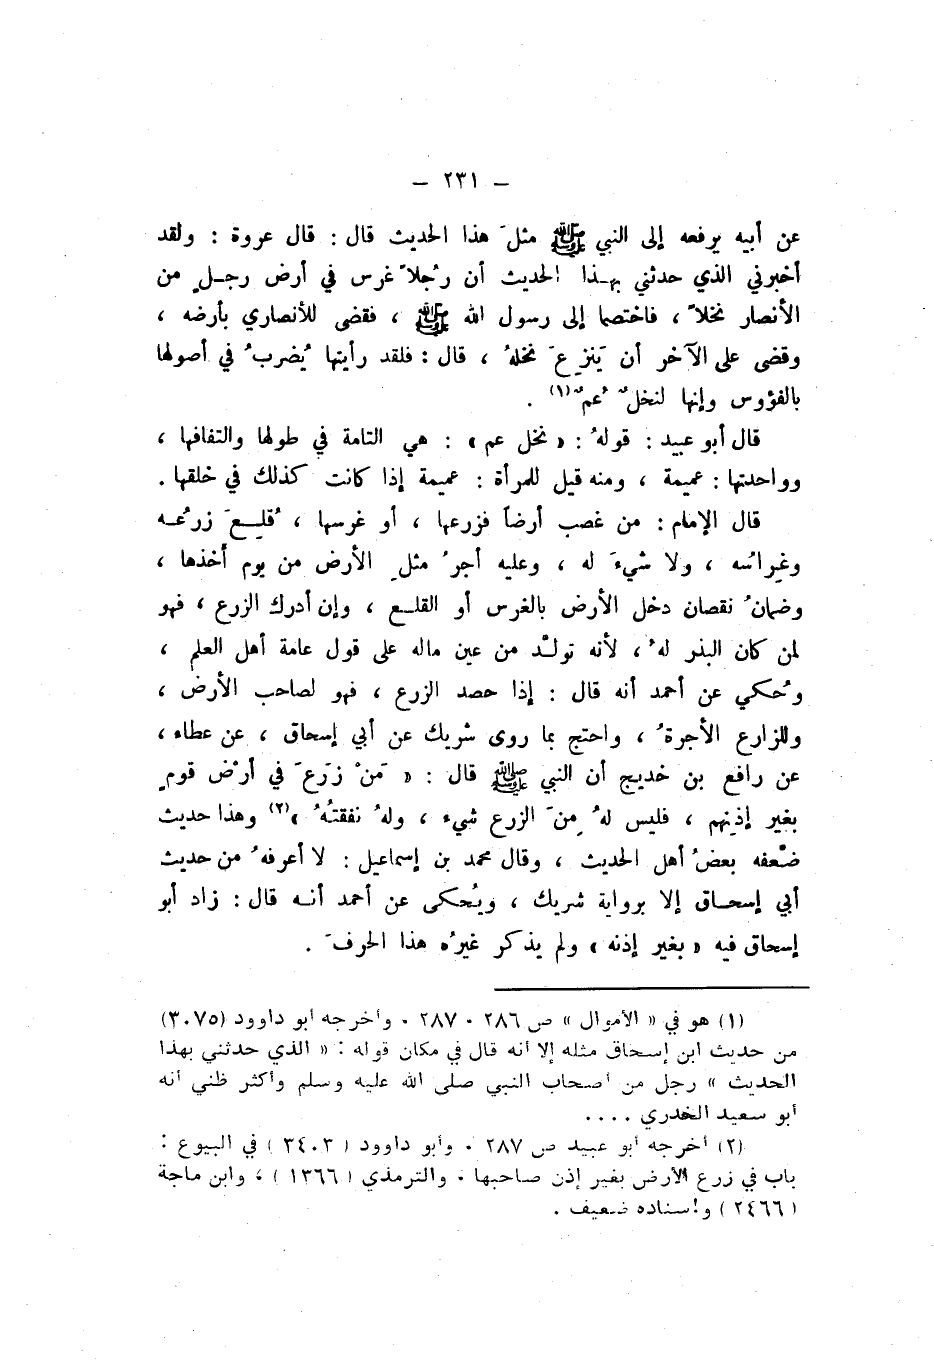 – ٢٣١ –
عن أبيه يرفعه إلى النبي ﷺ مثلَ هذا الحديث قال : قال عروة : ولقد
أخبرني الذي حدثني بهذا الحديث أن رجُلاً غرس في أرض رجلٍ من
الأنصار نخلاً ، فاختصما إلى رسول الله ﷺ ، فقضى للأنصاري بأرضه ،
وقضى على الآخر أن يَنزِعَ نخلهُ ، قال : فلقد رأيتها يُضربُ في أصولها
بالفؤوس وإنها لنخلٌ عُمٌّ(١) .
قال أبو عبيد : قولهُ : « نخل عم » : هي التامة في طولها والتفافها ،
وواحدتها : عميمة ، ومنه قيل للمرأة : عميمة إذا كانت كذلك في خلقها .
قال الإمام : من غصب أرضاً فزرعها ، أو غرسها ، قُلِعَ زرعُه
وغِراسُه ، ولا شيءَ له ، وعليه أجرُ مثلِ الأرض من يوم أخذها ،
وضمانُ نقصان دخل الأرض بالغرس أو القلع ، وإن أدرك الزرع ، فهو
لمن كان البذر لهُ ، لأنه تولَّد من عين ماله على قول عامة أهل العلم ،
وحُكي عن أحمد أنه قال : إذا حصد الزرع ، فهو لصاحب الأرض ،
وللزارع الأجرةُ ، واحتج بما روى شريك عن أبي إسحاق ، عن عطاء ،
عن رافع بن خديج أن النبي ﷺ قال : « مَنْ زرَعَ في أرْض قومٍ
بغير إذنِهم ، فليس لهُ مِنَ الزرع شيء ، ولهُ نفقتُهُ »(٢) وهذا حديث
ضعَّفه بعضُ أهل الحديث ، وقال محمد بن إسماعيل : لا أعرفهُ من حديث
أبي إسحاق إلا برواية شريك ، ويُحكى عن أحمد أنه قال : زاد أبو
إسحاق فيه « بغير إذنه » ولم يذكر غيرُه هذا الحرفَ .
(١) هو في « الأموال » ص ٢٨٦ ، ٢٨٧ ، وأخرجه أبو داوود (٣٠٧٥)
من حديث ابن إسحاق مثله إلا أنه قال في مكان قوله : « الذي حدثني بهذا
الحديث » رجل من أصحاب النبي صلى الله عليه وسلم وأكثر ظني أنه
أبو سعيد الخدري ....
(٢) أخرجه أبو عبيد ص ٢٨٧ ، وأبو داوود ( ٣٤٠٣ ) في البيوع :
باب في زرع الأرض بغير إذن صاحبها ، والترمذي ( ١٣٦٦ ) ، وابن ماجة
( ٢٤٦٦ ) وإسناده ضعيف .